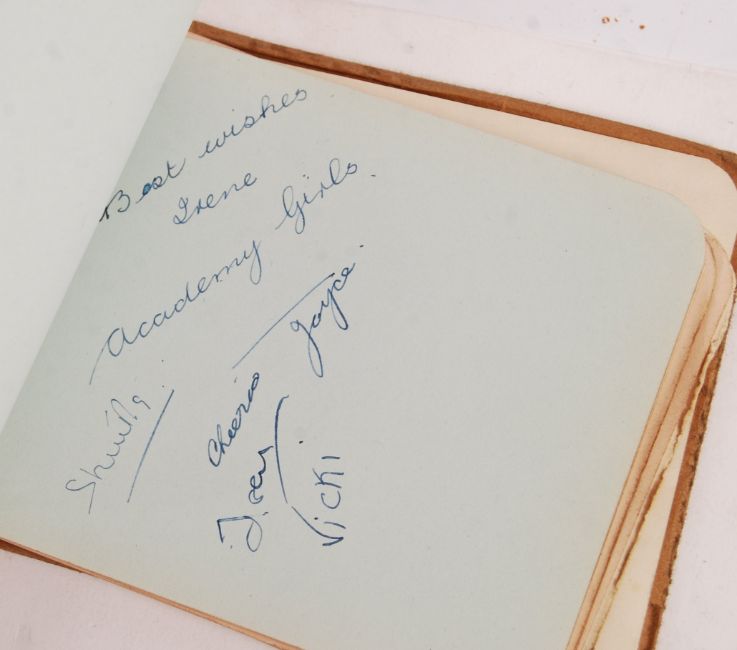 Best wishes
Irene
Academy Girls.
Joyce.
Cheerio
Vicki